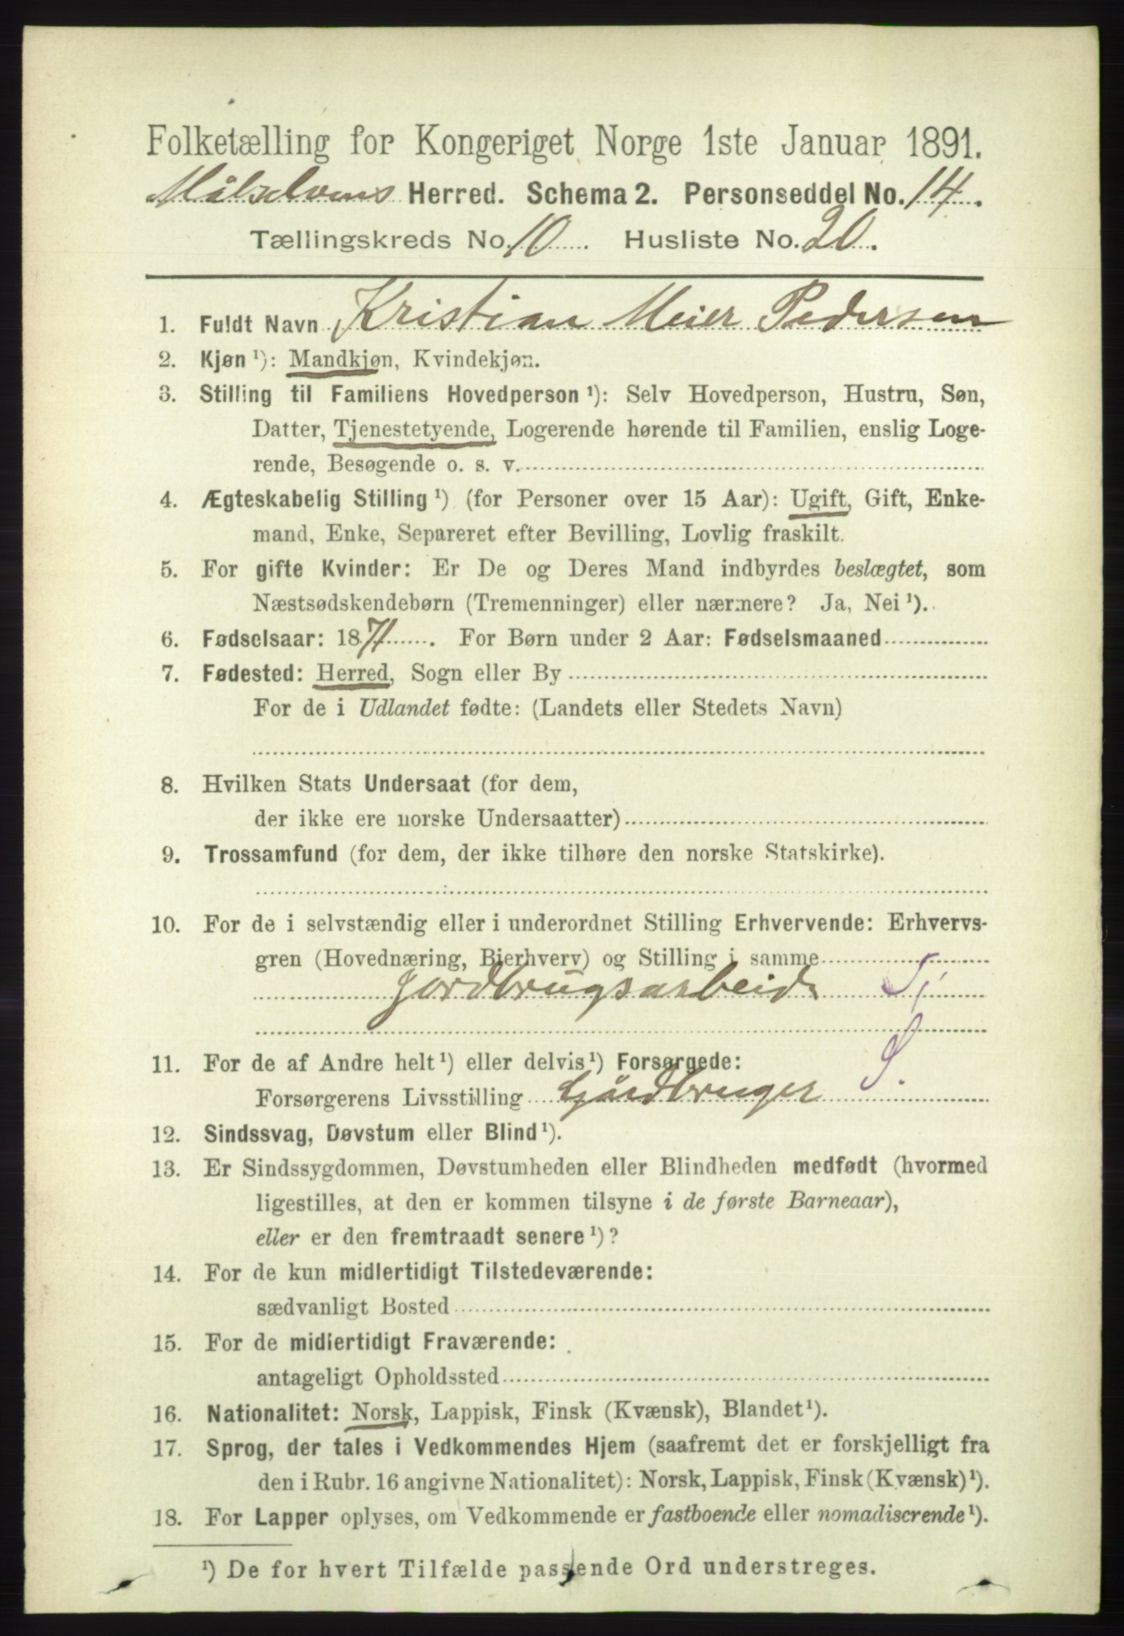 Folketælling for Kongeriget Norge 1ste Januar 1891.
Målselvens Herred. Schema 2. Personseddel No. 14.
Tællingskreds No. 10. Husliste No. 20.
1. Fuldt Navn Kristian Meier Pedersen
2. Kjøn ¹): Mandkjøn, Kvindekjøn.
3. Stilling til Familiens Hovedperson ¹): Selv Hovedperson, Hustru, Søn,
Datter, Tjenestetyende, Logerende hørende til Familien, enslig Loge-
rende, Besøgende o. s. v.
4. Ægteskabelig Stilling ¹) (for Personer over 15 Aar): Ugift, Gift, Enke-
mand, Enke, Separeret efter Bevilling, Lovlig fraskilt.
5. For gifte Kvinder: Er De og Deres Mand indbyrdes beslægtet, som
Næstsødskendebørn (Tremenninger) eller nærmere? Ja, Nei ¹).
6. Fødselsaar: 1871. For Børn under 2 Aar: Fødselsmaaned
7. Fødested: Herred, Sogn eller By
For de i Udlandet fødte: (Landets eller Stedets Navn)
8. Hvilken Stats Undersaat (for dem,
der ikke ere norske Undersaatter)
9. Trossamfund (for dem, der ikke tilhøre den norske Statskirke).
10. For de i selvstændig eller i underordnet Stilling Erhvervende: Erhvervs-
gren (Hovednæring, Bierhverv) og Stilling i samme
Jordbrugsarbeide Tj
11. For de af Andre helt ¹) eller delvis ¹) Forsørgede:
Forsørgerens Livsstilling Gårdbruger S.
12. Sindssvag, Døvstum eller Blind ¹).
13. Er Sindssygdommen, Døvstumheden eller Blindheden medfødt (hvormed
ligestilles, at den er kommen tilsyne i de første Barneaar),
eller er den fremtraadt senere ¹)?
14. For de kun midlertidigt Tilstedeværende:
sædvanligt Bosted
15. For de midlertidigt Fraværende:
antageligt Opholdssted
16. Nationalitet: Norsk, Lappisk, Finsk (Kvænsk), Blandet ¹).
17. Sprog, der tales i Vedkommendes Hjem (saafremt det er forskjelligt fra
den i Rubr. 16 angivne Nationalitet): Norsk, Lappisk, Finsk (Kvænsk) ¹).
18. For Lapper oplyses, om Vedkommende er fastboende eller nomadiserende ¹).
¹) De for hvert Tilfælde passende Ord understreges.